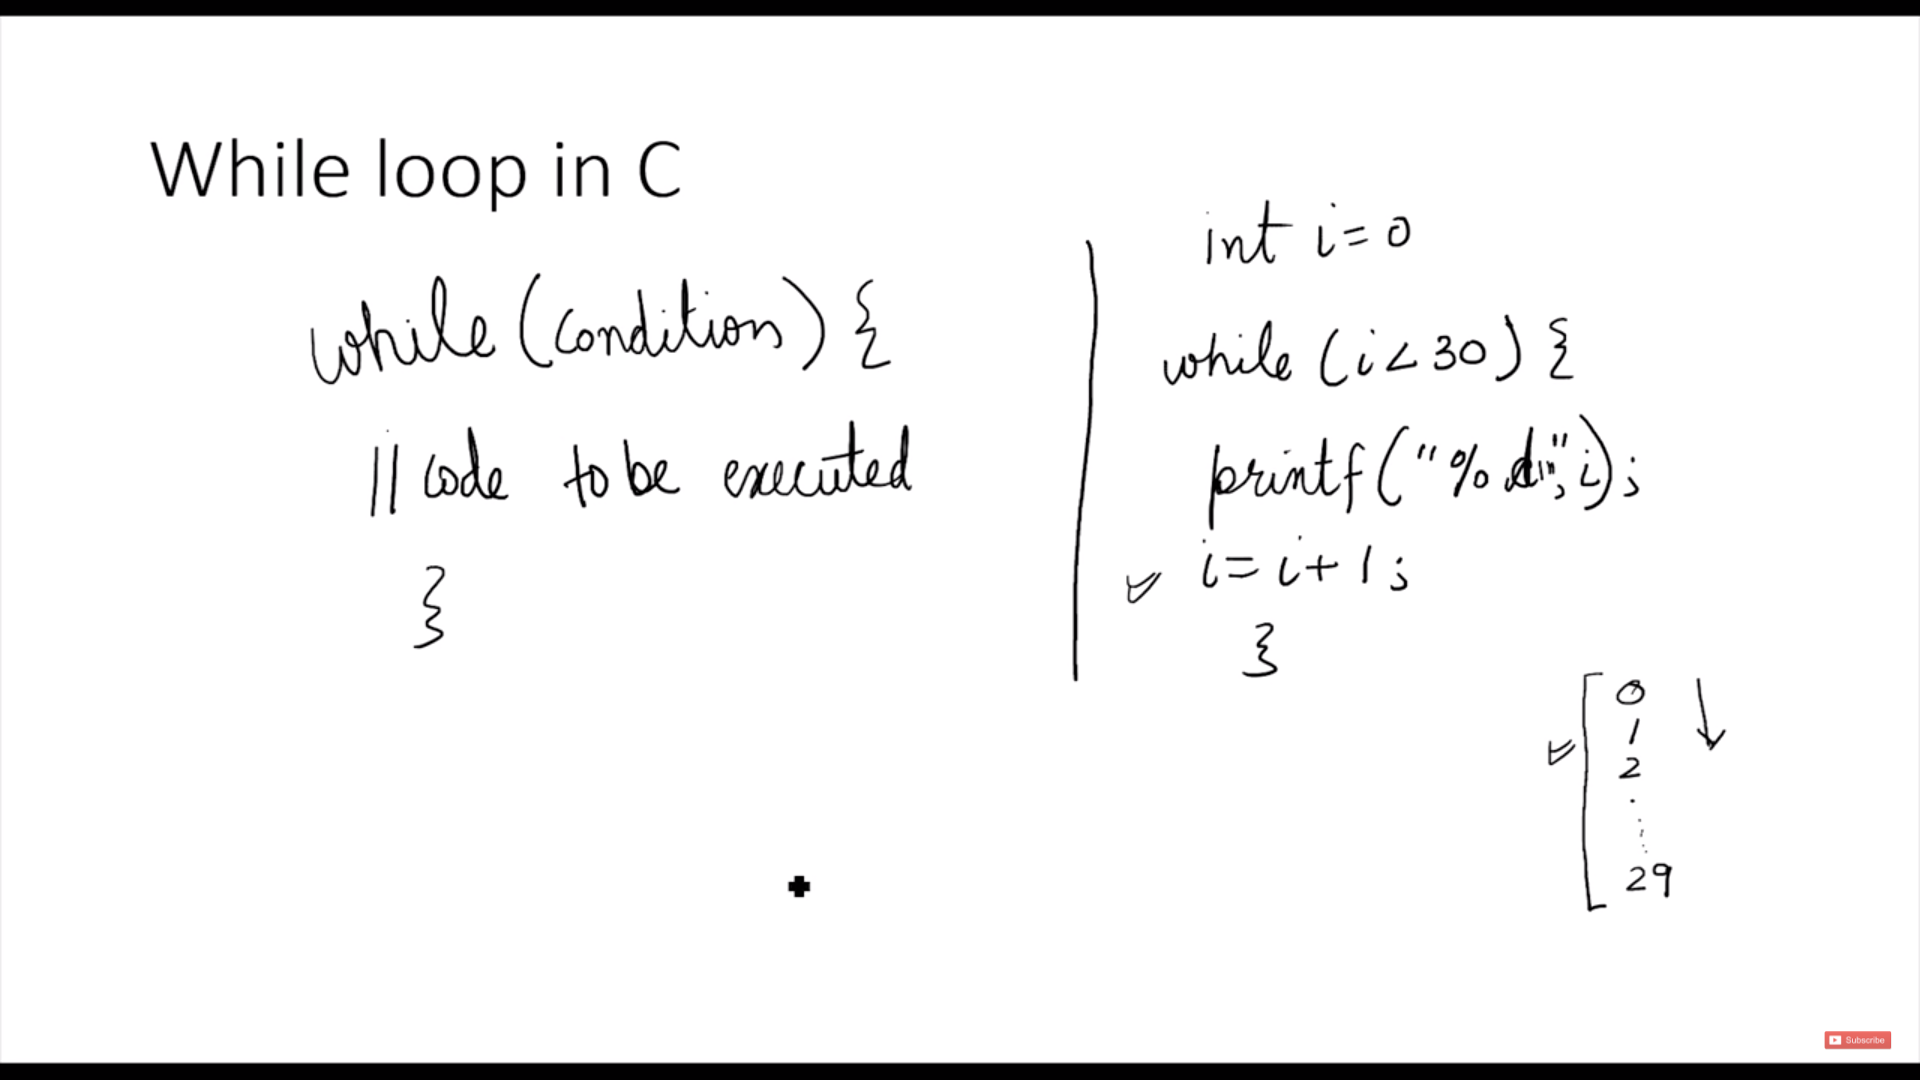 While loop in C
while (condition) {
// code to be executed
}
int i = 0
while (i < 30) {
printf("%d\n", i);
i = i + 1;
}
0
1
2
.
.
.
.
29
Subscribe